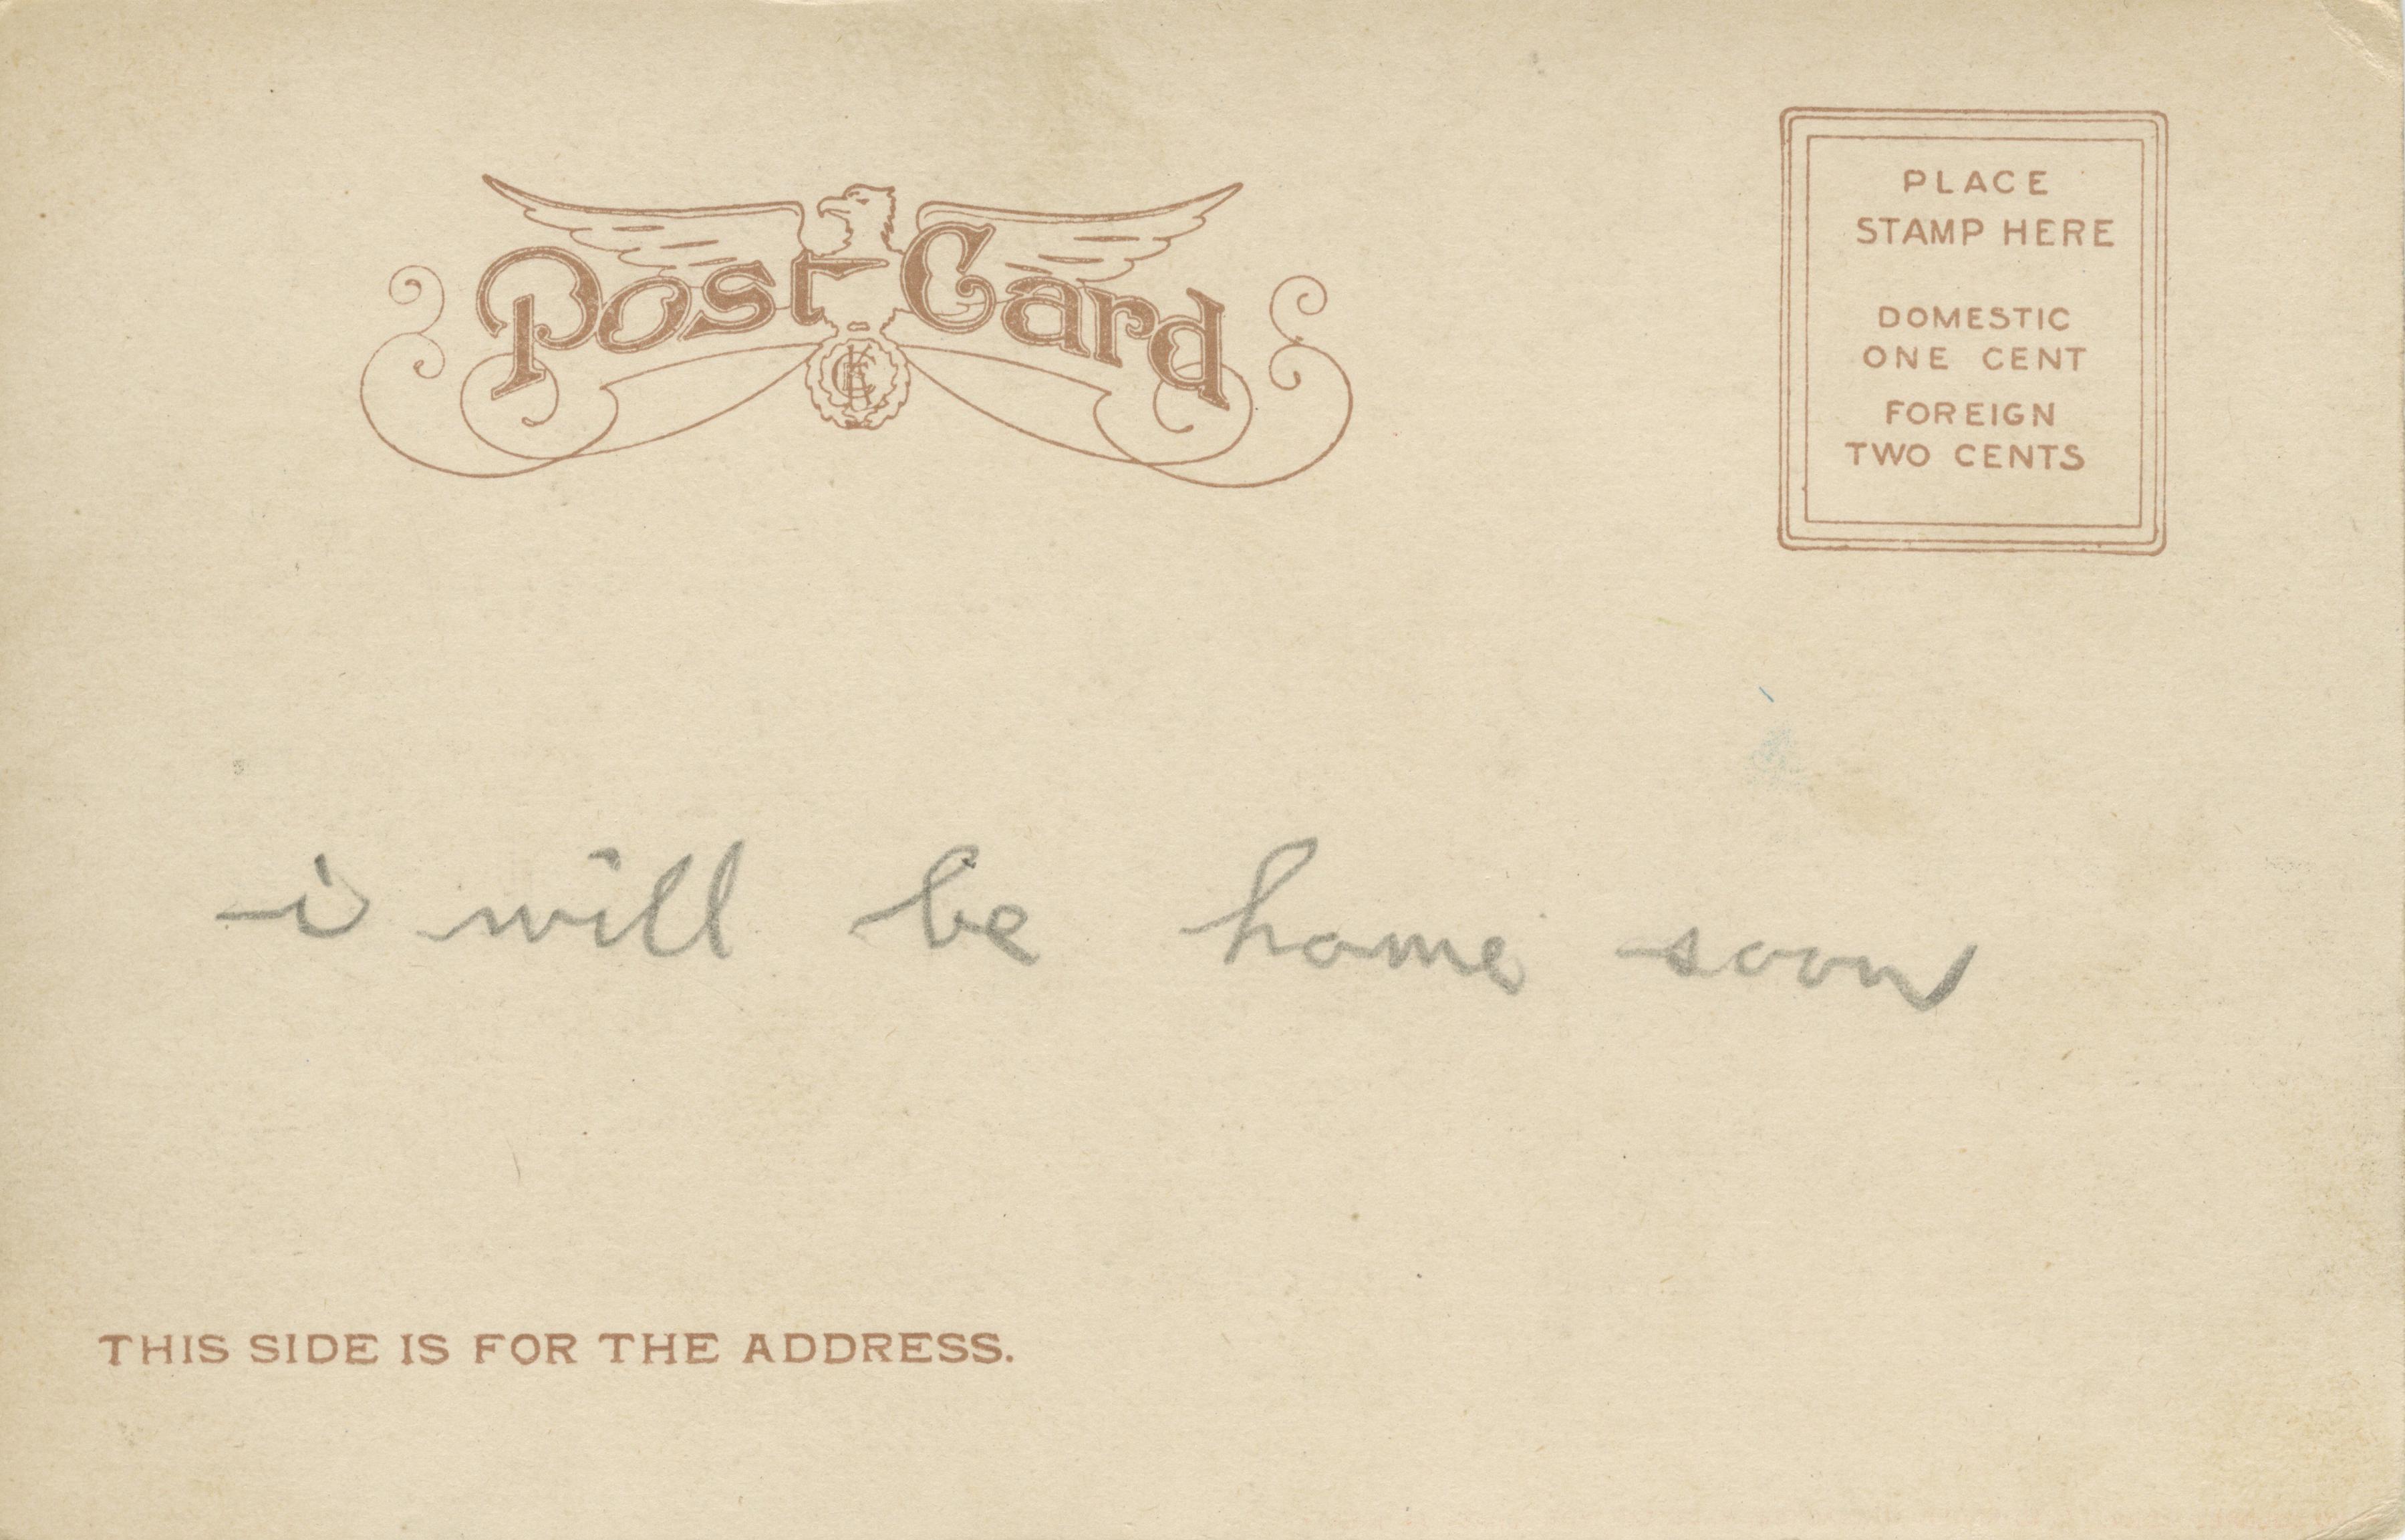 Post Card
PLACE
STAMP HERE
DOMESTIC
ONE CENT
FOREIGN
TWO CENTS
i will be home soon
THIS SIDE IS FOR THE ADDRESS.